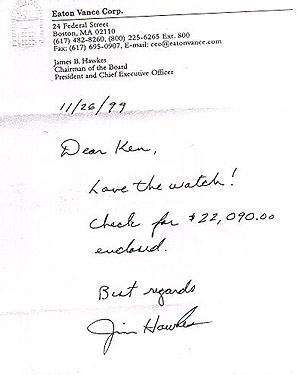 Eaton Vance Corp.
24 Federal Street
Boston, MA 02110
(617) 482-8260, (800) 225-6265 Ext. 800
Fax: (617) 695-0907, E-mail: ceo@eatonvance.com
James B. Hawkes
Chairman of the Board
President and Chief Executive Officer
11/26/99
Dear Ken,
Love the watch!
Check for $22,090.00
enclosed.
Best regards
Jim Hawkes